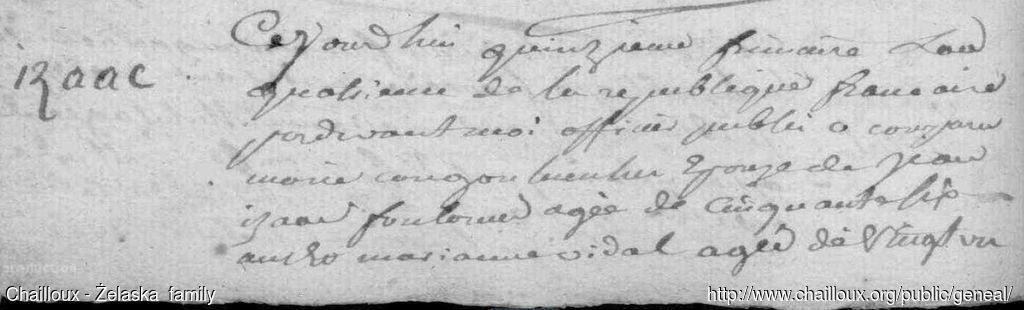 izaac
Cejourdhui quinzieme frimaire Lan
quatrieme de la republique francaise
pardevant moi officier public a comparu
marie epouze de jean
izaac agée de cinquante six
marianne vidal agée de vingt un
Chailloux - Żelaska family
http://www.chailloux.org/public/geneal/